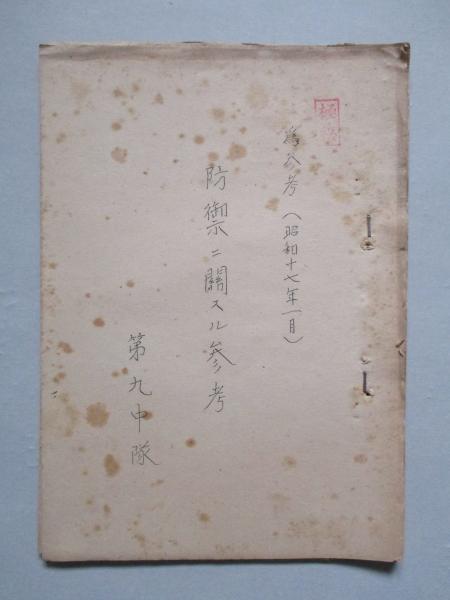 極秘
為参考(昭和十七年一月)
防禦ニ關スル参考
第九中隊